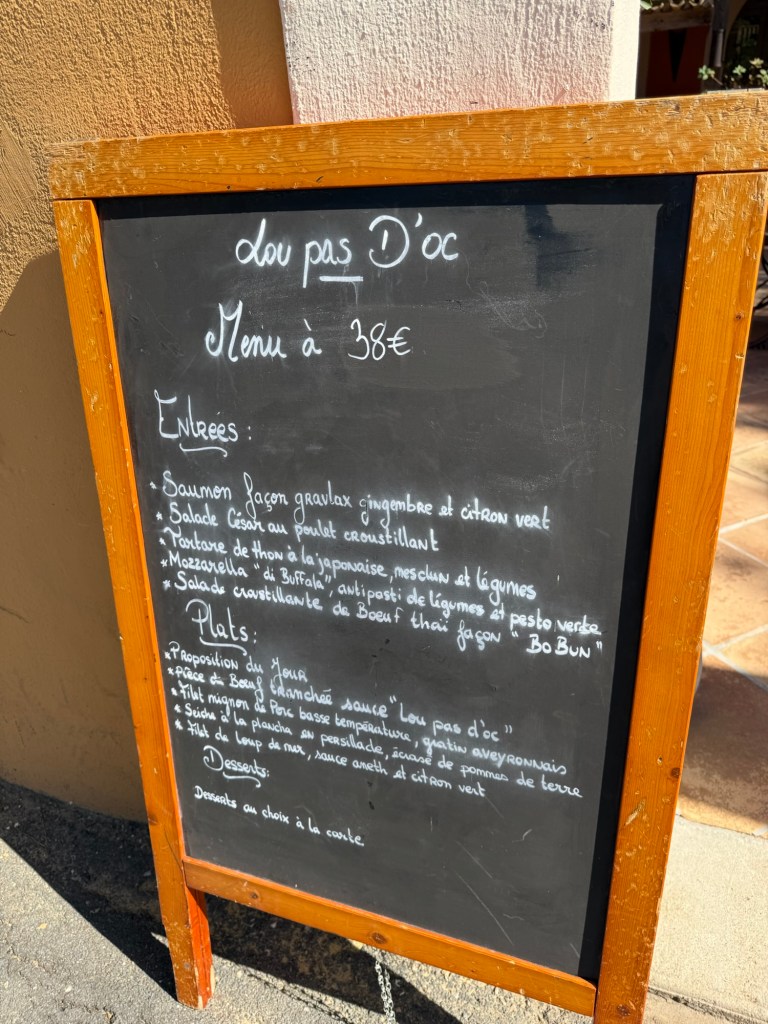 Lou pas D'oc
Menu à 38€
Entrées :
* Saumon façon gravlax gingembre et citron vert
* Salade César au poulet croustillant
* Tartare de thon à la japonaise, mesclun et légumes
* Mozzarella "di Buffala", antiposti de légumes et pesto verte
* Salade croustillante de Boeuf thaï façon "BoBun"
Plats :
* Proposition du Jour
* Pièce de Boeuf tranchée sauce "Lou pas d'oc"
* Filet mignon de Porc basse température, gratin aveyronnais
* Seiche à la plancha en persillade, écrasé de pommes de terre
* Filet de Loup de mer, sauce aneth et citron vert
Desserts :
Desserts au choix à la carte